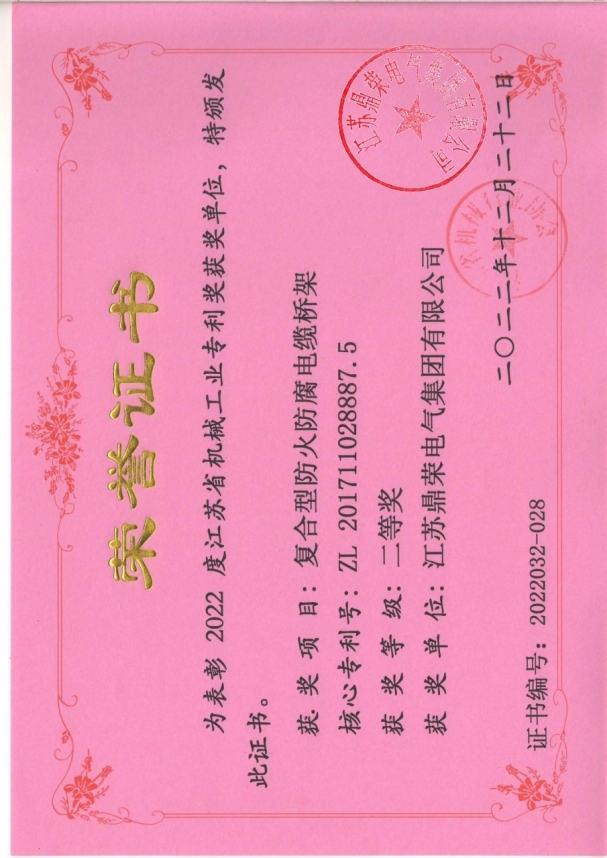 荣誉证书
为表彰 2022 度江苏省机械工业专利奖获奖单位，特颁发
此证书。
获奖项目：复合型防火防腐电缆桥架
核心专利号：ZL 201711028887.5
获奖等级：二等奖
获奖单位：江苏鼎荣电气集团有限公司
二〇二二年十二月二十二日
证书编号：2022032-028
江苏鼎荣电气集团有限公司